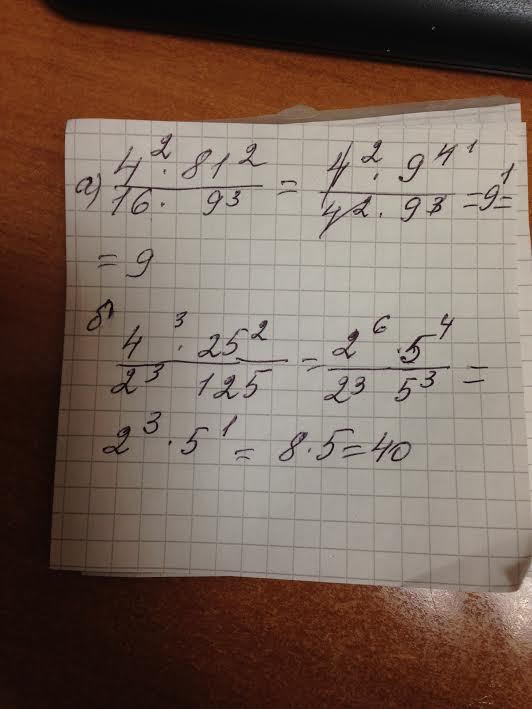 а) (4² · 81²)/(16 · 9³) = (4² · 9⁴ ¹)/(4² · 9³) = 9¹ =
= 9
б) (4³ · 25²)/(2³ 125) = (2⁶ · 5⁴)/(2³ 5³) =
2³ · 5¹ = 8 · 5 = 40